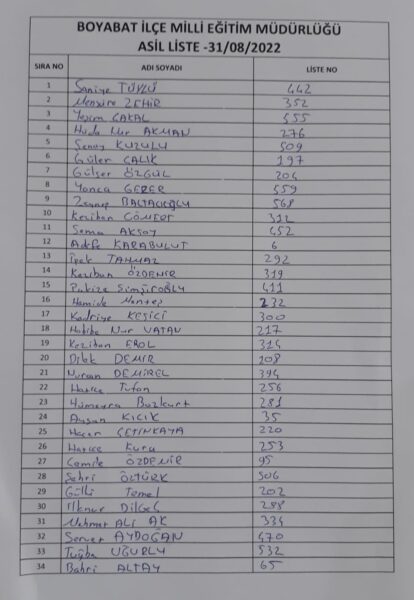 BOYABAT İLÇE MİLLİ EĞİTİM MÜDÜRLÜĞÜ
ASİL LİSTE -31/08/2022
SIRA NO ADI SOYADI LİSTE NO
1 Saniye TÜYLÜ 442
2 Menşure ZEHİR 352
3 Yeşim ÇAKAL 455
4 Huda Nur AKMAN 276
5 Şenay KUZULU 509
6 Güler ÇALIK 197
7 Gülşer ÖZGÜL 204
8 Yonca GERER 559
9 Zeynep BALTACIOĞLU 568
10 Keziban CÖMERT 312
11 Sema AKSOY 452
12 Adife KARABULUT 6
13 İpek TANMAZ 292
14 Keziban ÖZDEMİR 319
15 Pakize Şimşiroğlu 411
16 Hamide 232
17 Kadriye KEŞİCİ 300
18 Habibe Nur VATAN 217
19 Keziban EROL 314
20 Dilek DEMİR 108
21 Nurcan DEMİREL 394
22 Hatice Tufan 256
23 Hümeyra Bozkurt 281
24 Aysun KICIK 35
25 Hacer ÇETİNKAYA 220
26 Hatice Kuru 253
27 Cemile ÖZDEMİR 95
28 Sehri ÖZTÜRK 506
29 Gülli Temel 202
30 İlknur Dilgel 288
31 Mehmet ALİ AK 334
32 Server AYDOĞAN 470
33 Tuğba UĞURLU 532
34 Bahri ALTAY 65